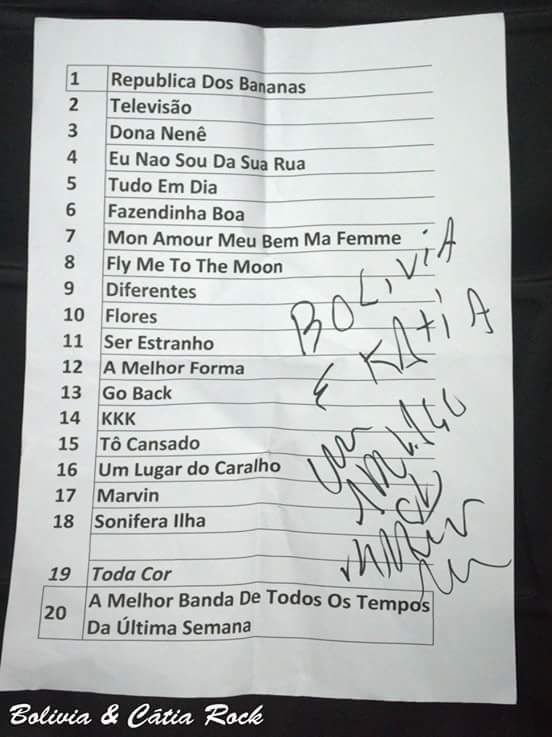 1 Republica Dos Bananas
2 Televisão
3 Dona Nenê
4 Eu Nao Sou Da Sua Rua
5 Tudo Em Dia
6 Fazendinha Boa
7 Mon Amour Meu Bem Ma Femme
8 Fly Me To The Moon
9 Diferentes
10 Flores
11 Ser Estranho
12 A Melhor Forma
13 Go Back
14 KKK
15 Tô Cansado
16 Um Lugar do Caralho
17 Marvin
18 Sonifera Ilha
19 Toda Cor
20 A Melhor Banda De Todos Os Tempos
Da Última Semana
BOLIVIA
E KATIA
Bolivia & Cátia Rock